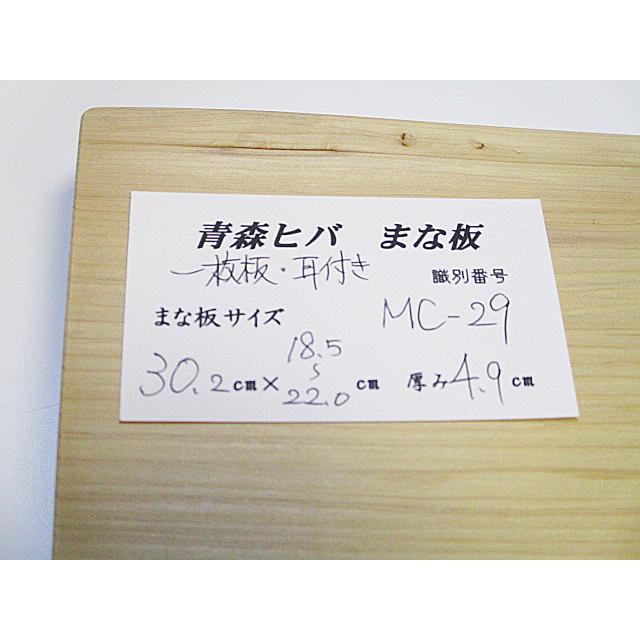 青森ヒバ　まな板
一枚板・耳付き
識別番号
まな板サイズ
MC-29
30.2cm×18.5〜22.0cm 厚み4.9cm